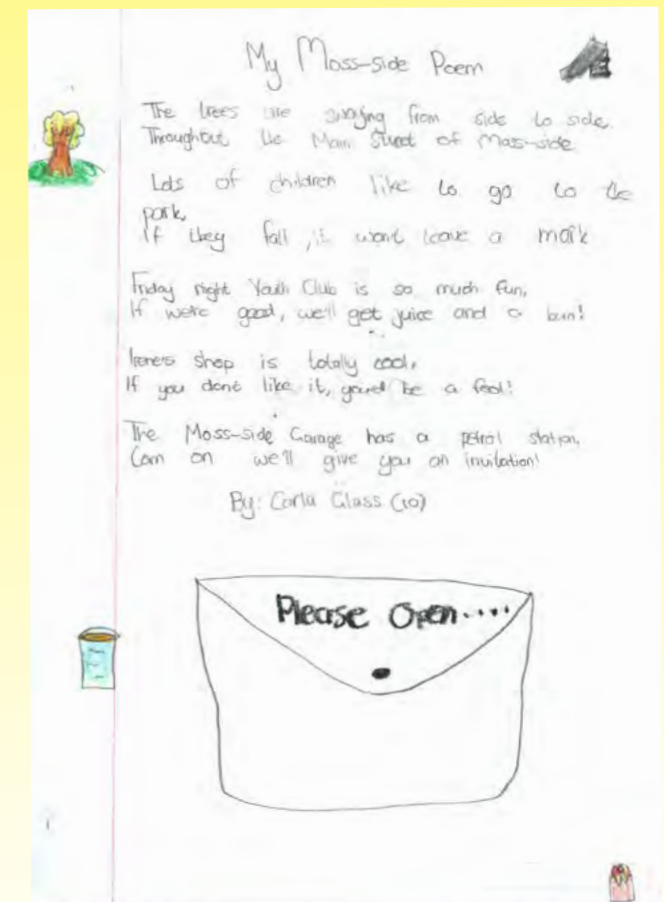 My Moss-side Poem
The trees are swaying from side to side.
Throughout the Main Street of Moss-side
Lots of children like to go to the
park,
If they fall, it wont leave a mark
Friday night Youth Club is so much fun,
If we're good, we'll get juice and a bun!
Irene's shop is totally cool,
If you dont like it, you'd be a fool!
The Moss-side Garage has a petrol station,
Com on we'll give you an invitation!
By: Carla Glass (10)
Please Open....